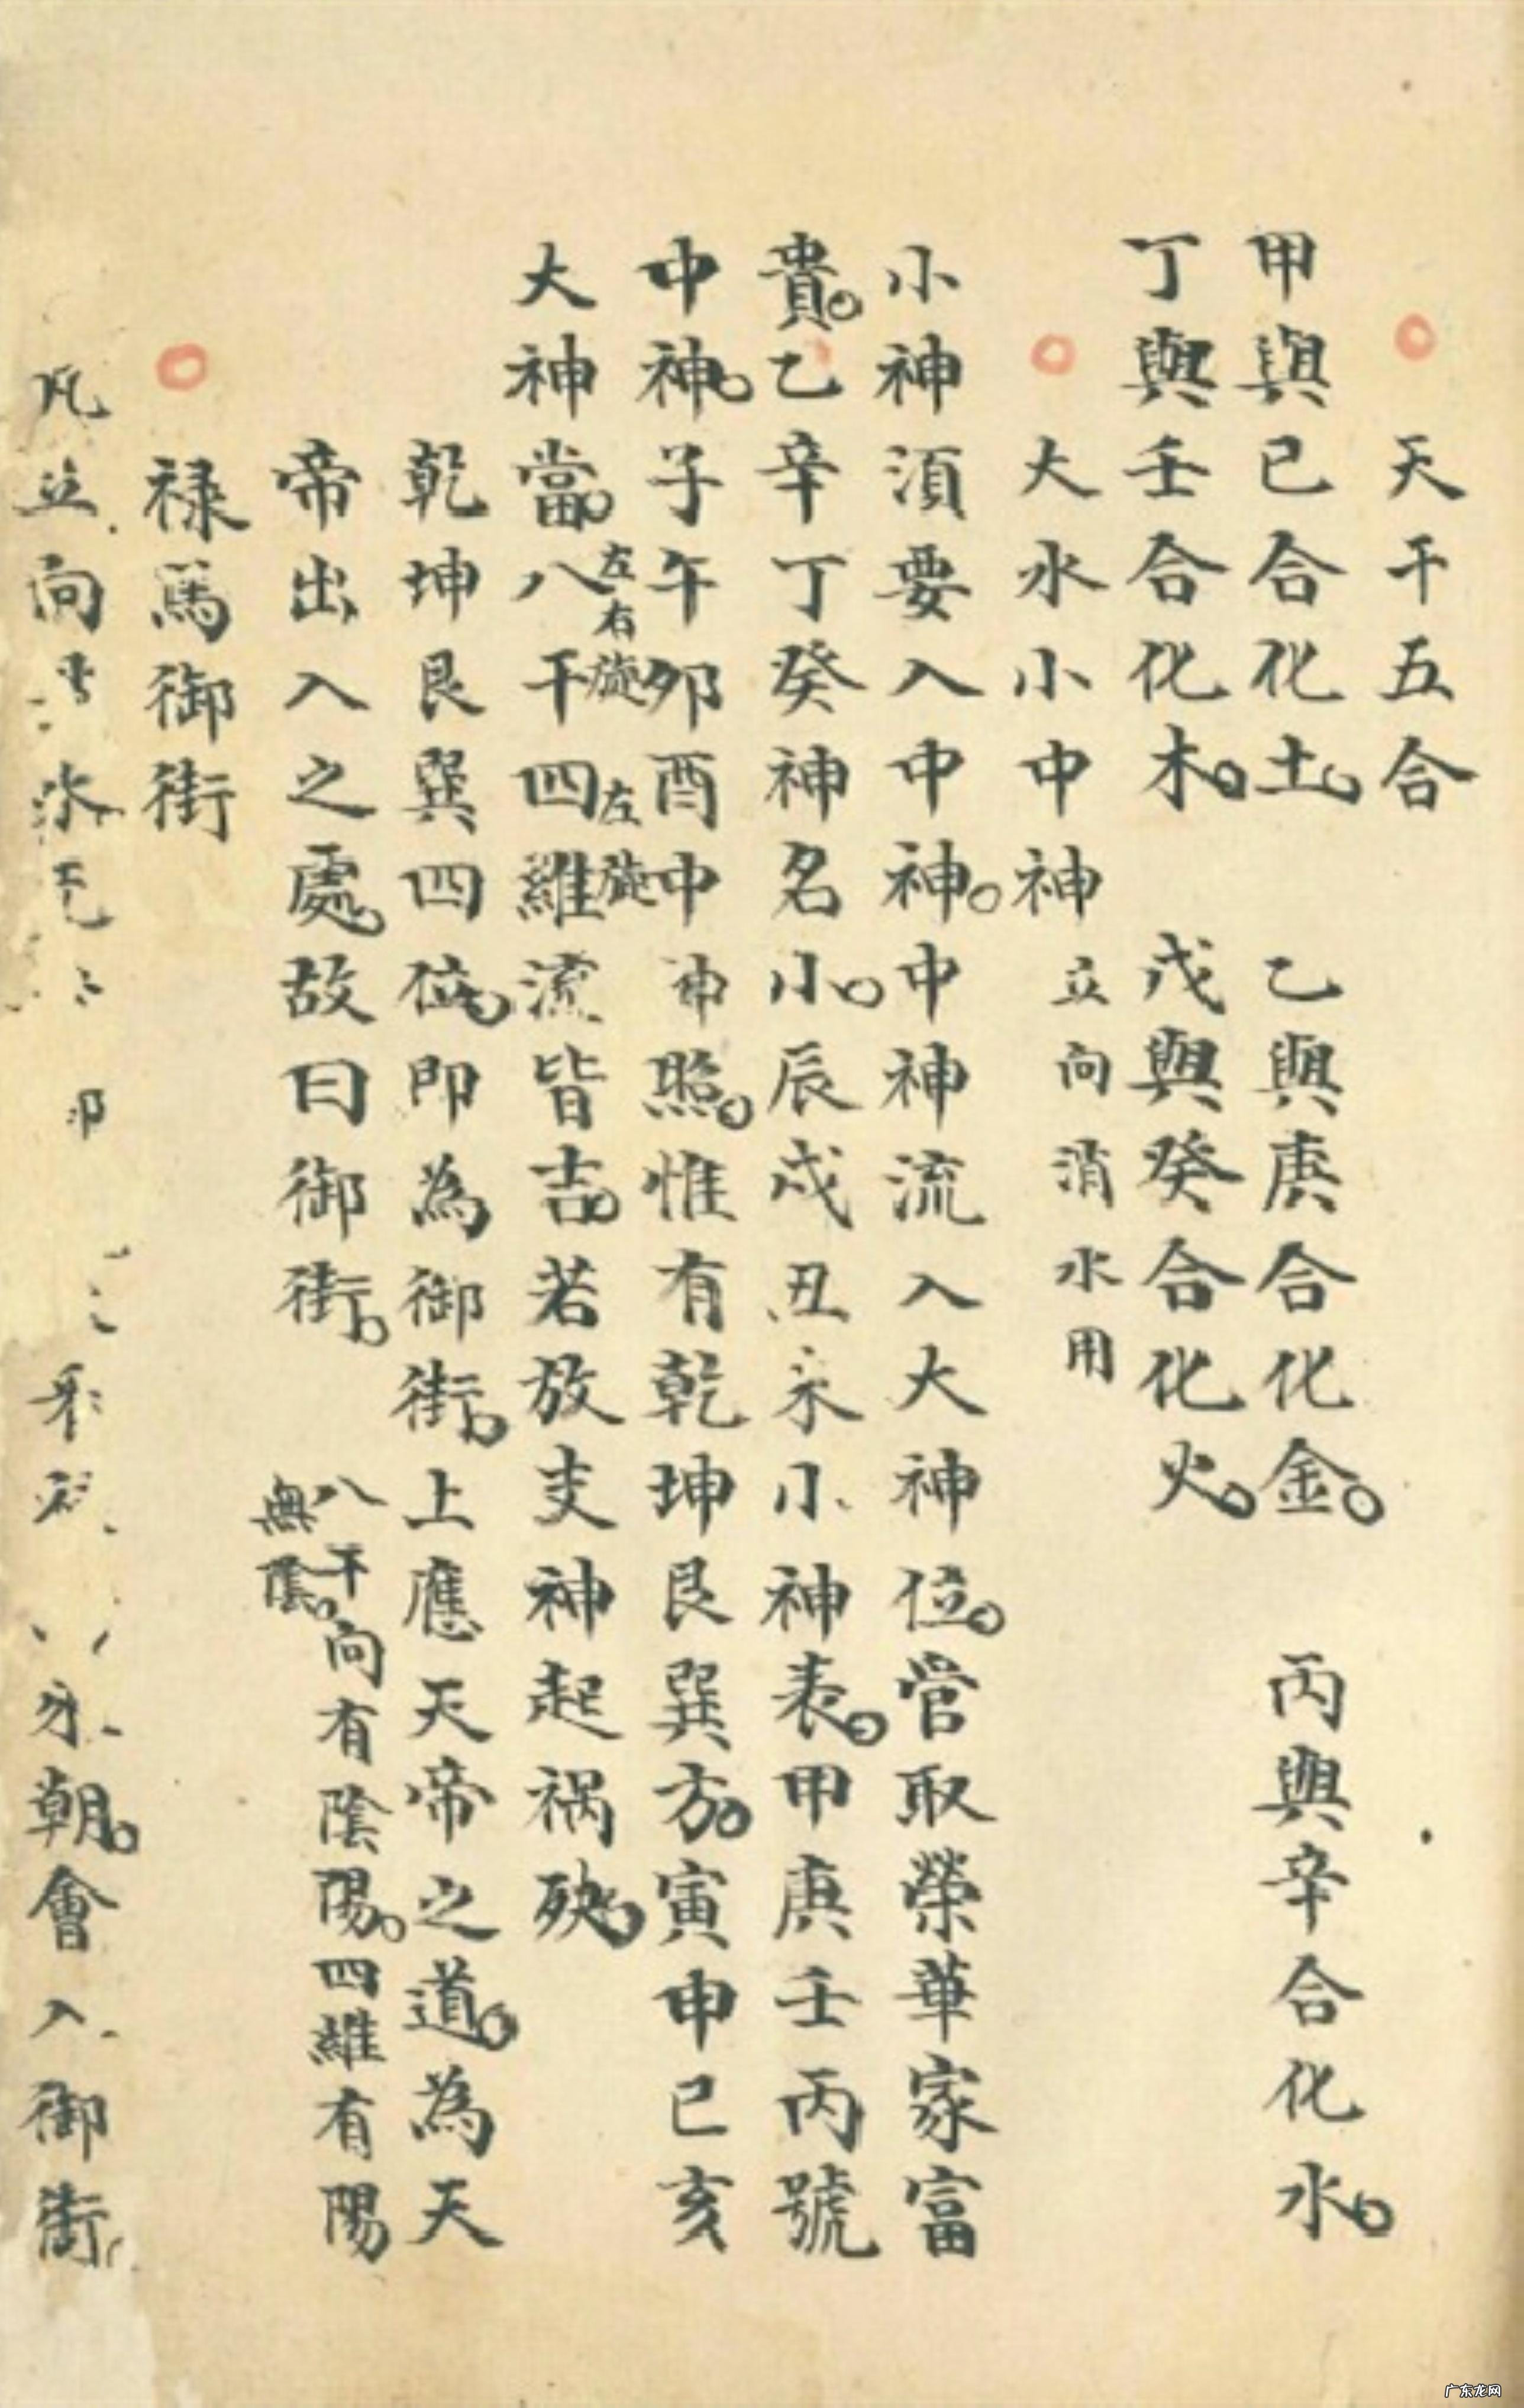 天干五合
甲與己合化土。乙與庚合化金。丙與辛合化水。
丁與壬合化木。戊與癸合化火。
大水小中神 立向消水用
小神須要入中神。中神流入大神位。管取榮華家富
貴。乙辛丁癸神名小。辰戌丑未小神表。甲庚壬丙號
中神。子午卯酉中神照。惟有乾坤艮巽方。寅申巳亥
大神當。八干四維流皆吉。若放支神起禍殃。
左右旋 左旋
乾坤艮巽四位。即為御街。上應天帝之道。為天
帝出入之處。故曰御街。
八干向有陰陽。四維有陽
無陰。
祿馬御街
凡立向 水 朝。會入御街
广东龙网